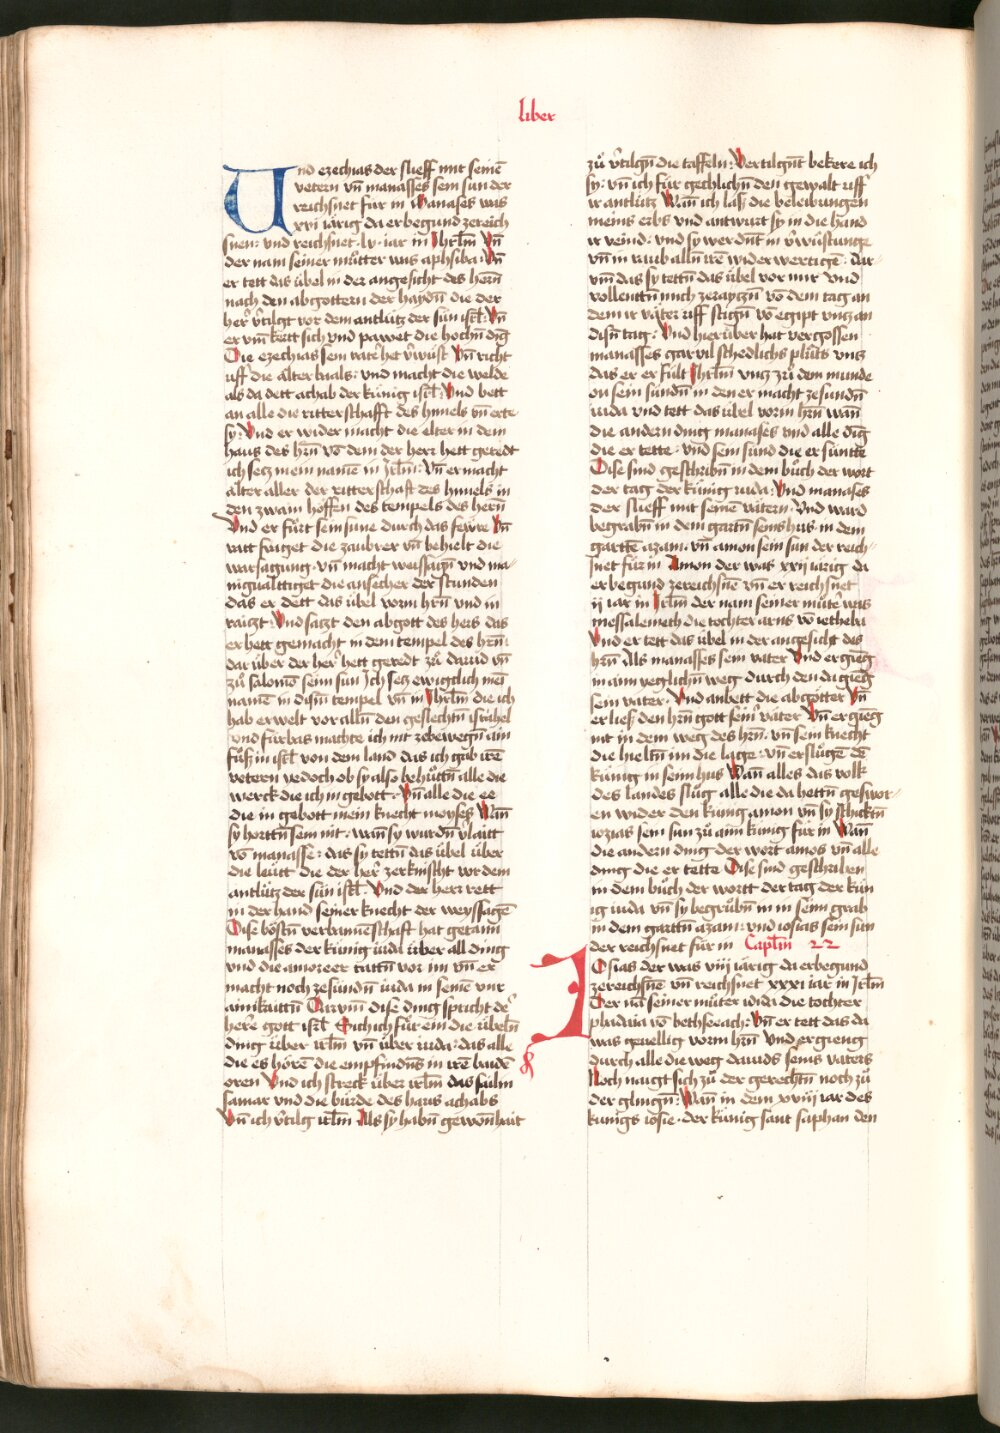 liber
Und ezechias der slieff mit seinē
vetern vñ manasses sein sun der
reichsnet für in Manases was
xxi iärig da er begund zereich
snen: und reichsnet · lv · iar in Jhrlm̄ Vñ
der nam seiner můtter was aphsiba: Vñ
er tett das übel in der angesicht des herñ
nach den abgottern der haydñ die der
her v̄tilgt vor dem antlütz der sün isrl̄: Vñ
er vm̄kertt sich und pawet die hochñ dīg
Die ezechias sein vater het v̄wüst Vñ richt
uff die älter baals: und macht die welde
als da dett achab der künig isrl̄: Und bett
an alle die ritterschafft des himels vñ erte
sy: Und er wider macht die elter in dem
haus des hrñ vō dem der herr hett geredt
ich setz mein namē in Jrlm̄: Vñ er macht
älter aller der ritterschaft des himels in
den zwain höffen des tempels des herñ
Und er fürt sein süne durch das feẅre Vñ
ratt fraget die zaubrer vñ behielt die
warsagung: vñ macht weissagñ und ma-
nigualttiget die anseher der stunden
das er dett das übel vorm hrñ und in
raitzt: Und satzt den abgott des heis das
er hett gemacht in dem tempel des hrñ:
dar über der her hett geredt zů dauid vñ
zů salomē seim sun Ich setz ewigclich mēī
namē in dism̄ tempel vñ in Jhrlm̄ die ich
hab erwelt vor allñ den geslechtñ israhel
und fürbas machte ich nit zebewegñ ain
fůß in isrl̄ von dem land das ich gab irē
vetern yedoch ob sy also behůttñ alle die
werck die ich in gebott: Vñ alle die ee
die in gebott mein knecht moyses Wañ
sy horttñ sein nit: wañ sy wurdñ v̄laitt
vō manasse: das sy tettñ das übel über
die leütt die der her zerknischt vor dem
antlütz der sün isrl̄: Und der herr rett
in der hand seiner knecht der weyssagē
Dise bösttñ verbanneschaft hat getann
manasses der künig iuda über all ding
und die amoreer tattñ vor im vñ er
macht noch zesündñ iuda in seinē vnr
ainikaittñ Darvm̄ dise ding spricht dē
herē gott isrl̄ Sich ich für ein die übelñ
ding über irlm̄ vñ über iuda: das alle
die es hörē die empfindñs in irē baidē
oren Und ich streck über irlm̄ das säilin
samar und die bürde des haus achabs
Vñ ich v̄tilg irlm̄ Als sy habñ gewonhait
zů v̄tilgñ die taffeln: Vertilgnt bekere ich
sy: vñ ich für gechlichñ den gewalt uff
ir antlütz Wañ ich laß die beleibungen
meins erbs und antwurt sy in die hand
ir veind: und sy werdñt in v̄wüstunge
vñ in raub allñ irē wider wertigē: dar-
vm̄ das sy tettñ das übel vor mir und
vollenttñ mich zerayczñ vō dem tag an
dem ir väter uff stigñ vō egipt vntz an
disñ tag: Und hier über hat vergossen
manasses gar vil schedlichs plůts vntz
das er er fült Jhrlm̄ vntz zů dem munde
on sein sündñ in den er macht zesündñ
iuda und tett das übel vorm hrñ wañ
die andern ding manases und alle dīg
die er tette: und sein sünd die er süntte
Dise sind geschribñ in dem bůch der wort
der tag der künig iuda: Und manases
der slieff mit seinē vätern: Und ward
begrabñ in dem gartñ seins hus in dem
garttē azam: vñ amon sein sun der reich-
snet für in Amon der was xxii iärig da
er begund zereichsnē vñ er reichsnet
ij iar in Jrlm̄ der nam seiner můtē was
messalemeth die tochter arus vō iethebra
Und er tett das übel in der angesicht des
hrñ Als manasses sein vater Und er gieng
in aim yeglichñ weg durch den da gieng
sein vater: Und anbett die abgötter Vñ
er ließ den hrñ gott seinr väter Vñ er gieng
nit in dem weg des hrñ: vñ sein knecht
die hieltñ im die lage: vñ erslůgē dē
künig in seim hus Wañ alles das volk
des landes slůg alle die da hettñ geswor-
en wider den künig amon vñ sy schicktñ
iozias sein sun zů aim künig für in Wañ
die andern ding der wort amos vñ alle
ding die er tette Dise sind geschriben
in dem bůch der wortt der tag der kün
ig iuda vñ sy begrůbñ in in seim grab
in dem garttñ azam: und iosias sein sun
der reichsnet für in Caplm̄ 22
IOsias der was viij iärig da er begund
zereichsnē vñ reichsnet xxxi iar in Jrlm̄
Der nā seiner můter idida die tochter
phadaia vō bethsecach: Vñ er tett das da
was geuellig vorm hrñ Und er gieng
durch alle die weg dauids seins vaters
Noch naigt sich zů der gerechtñ noch zů
der glincgñ: Wañ in dem xviij iar des
künigs iosie · der künig sant saphan den